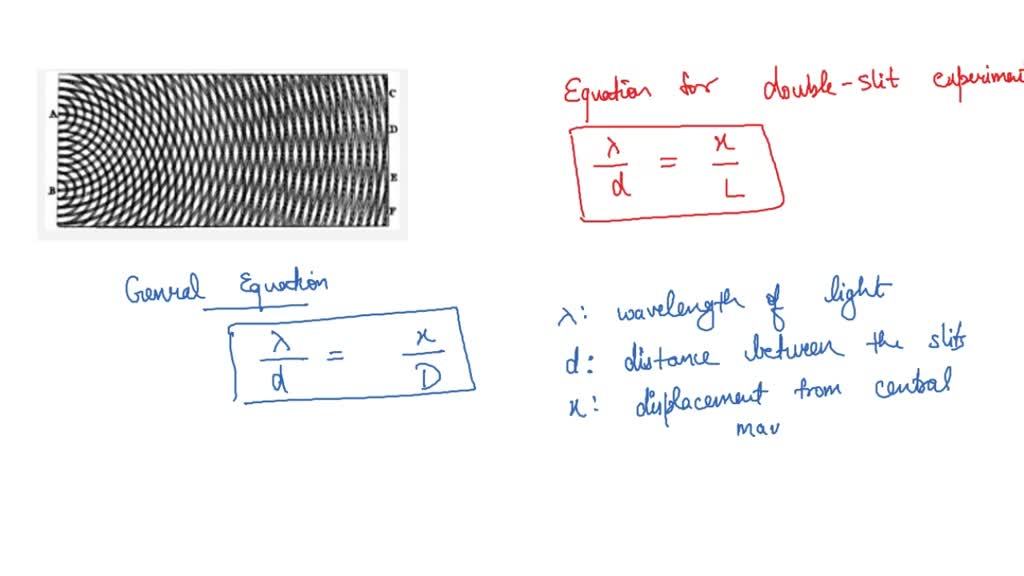 A
B
C
D
E
F
Equation for double-slit experiment
λ/d = x/L
Genral Equation
λ/d = x/D
λ: wavelength of light
d: distance between the slits
x: displacement from central
mav